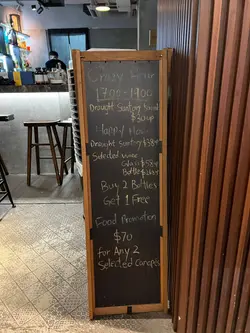 Crazy Hour
1700-1900
Draught Suntory
$30up
Happy Hour
Draught Suntory $38up
Selected wine
Glass $58up
Bottle
Buy 2 Bottles
Get 1 Free
Food Promotion
$70
for Any 2
Selected Canapés